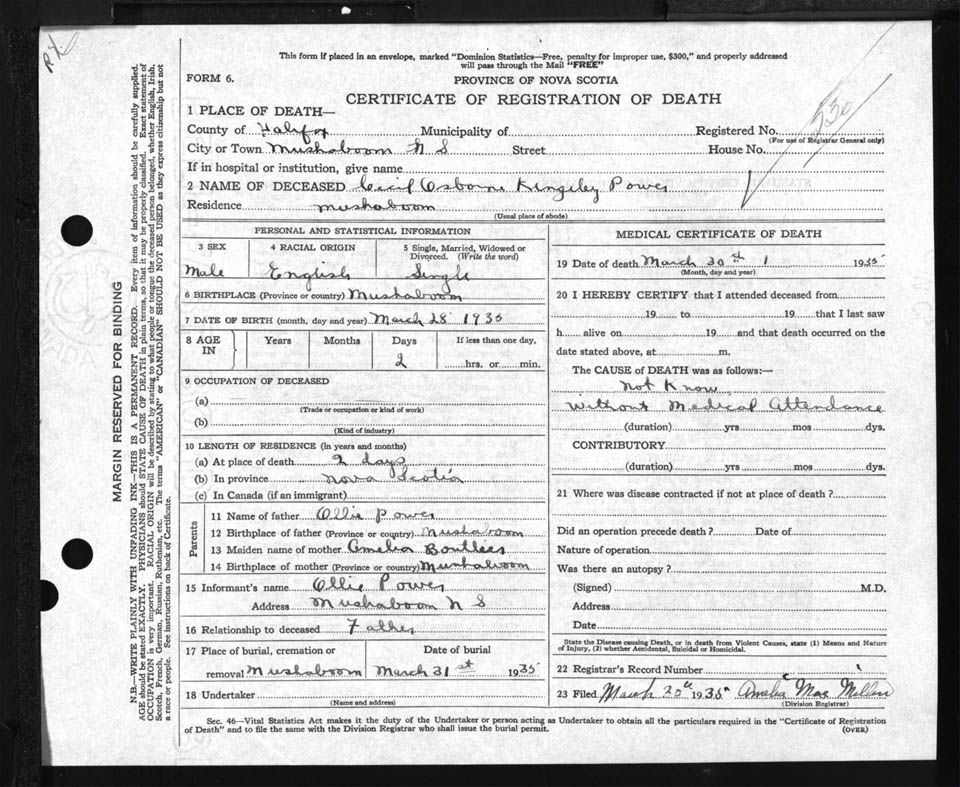 This form if placed in an envelope, marked "Dominion Statistics—Free, penalty for improper use, $300," and properly addressed
will pass through the Mail "FREE"
FORM 6.
PROVINCE OF NOVA SCOTIA
CERTIFICATE OF REGISTRATION OF DEATH
530
1 PLACE OF DEATH—
County of Halifax Municipality of Registered No.
(For use of Registrar General only)
City or Town Mushaboom N S Street House No.
If in hospital or institution, give name
2 NAME OF DECEASED Cecil Osborne Kingsley Power
Residence mushaboom
(Usual place of abode)
PERSONAL AND STATISTICAL INFORMATION
3 SEX 4 RACIAL ORIGIN 5 Single, Married, Widowed or Divorced. (Write the word)
Male English Single
6 BIRTHPLACE (Province or country) Mushaboom
7 DATE OF BIRTH (month, day and year) March 28 1935
8 AGE IN Years Months Days If less than one day,
2 hrs. or min.
9 OCCUPATION OF DECEASED
(a)
(Trade or occupation or kind of work)
(b)
(Kind of industry)
10 LENGTH OF RESIDENCE (in years and months)
(a) At place of death 2 days
(b) In province Nova Scotia
(c) In Canada (if an immigrant)
Parents
11 Name of father Ollie Power
12 Birthplace of father (Province or country) Mushaboom
13 Maiden name of mother Amelia Boutlier
14 Birthplace of mother (Province or country) Mushaboom
15 Informant's name Ollie Power
Address Mushaboom N S
16 Relationship to deceased Father
17 Place of burial, cremation or Date of burial
removal Mushaboom March 31st 1935
18 Undertaker
(Name and address)
MEDICAL CERTIFICATE OF DEATH
19 Date of death March 30th 1935
(Month, day and year)
20 I HEREBY CERTIFY that I attended deceased from
19 to 19 that I last saw
h alive on 19 and that death occurred on the
date stated above, at m.
The CAUSE of DEATH was as follows:—
Not Know
Without Medical Attendance
(duration) yrs mos dys.
CONTRIBUTORY
(duration) yrs mos dys.
21 Where was disease contracted if not at place of death?
Did an operation precede death? Date of
Nature of operation
Was there an autopsy?
(Signed) M.D.
Address
Date
State the Disease causing Death, or in death from Violent Causes, state (1) Means and Nature
of Injury, (2) whether Accidental, Suicidal or Homicidal.
22 Registrar's Record Number
23 Filed March 30th 1935 Amelia MacMillan
(Division Registrar)
Sec. 46—Vital Statistics Act makes it the duty of the Undertaker or person acting as Undertaker to obtain all the particulars required in the "Certificate of Registration
of Death" and to file the same with the Division Registrar who shall issue the burial permit.
(OVER)
MARGIN RESERVED FOR BINDING
N.B.—WRITE PLAINLY WITH UNFADING INK—THIS IS A PERMANENT RECORD. Every item of information should be carefully supplied.
AGE should be stated EXACTLY. PHYSICIANS should STATE CAUSE OF DEATH in plain terms, so that it may be properly classified. Exact statement of
OCCUPATION is very important. RACIAL ORIGIN will be described by stating to what people or tongue the deceased person belonged, whether English, Irish,
Scotch, French, German, Russian, Ruthenian, etc. The terms "AMERICAN" or "CANADIAN" SHOULD NOT BE USED as they express citizenship but not
a race or people. See instructions on back of Certificate.